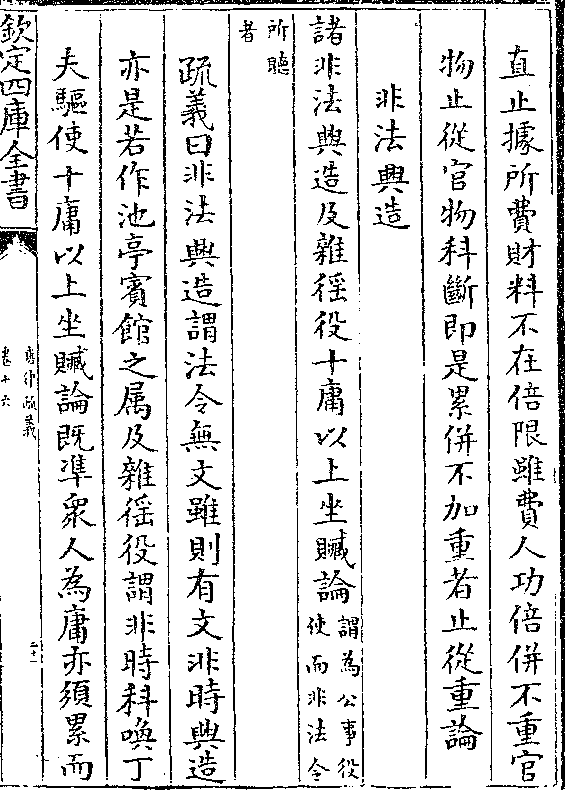 直止據所費財料不在倍限雖費人功倍併不重官
物止從官物科斷即是累併不加重者止從重論
非法興造
諸非法興造及雜徭役十庸以上坐贓論謂為公事役
使而非法令
所聽
者
疏義曰非法興造謂法令無文雖則有文非時興造
亦是若作池亭賓館之屬及雜徭役謂非時科喚丁
夫驅使十庸以上坐贓論既準衆人為庸亦須累而
欽定四庫全書
唐律疏義
卷十六